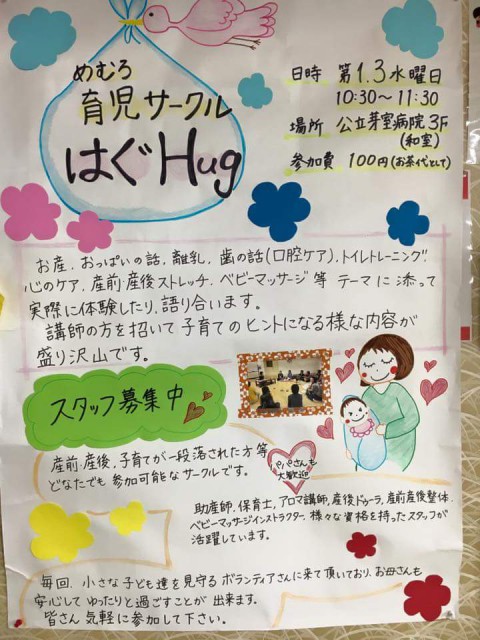 めむろ
育児サークル
はぐHug
日時 第1.3水曜日
10:30〜11:30
場所 公立芽室病院3F
(和室)
参加費 100円(お茶代として)
お産．おっぱいの話．離乳．歯の話(口腔ケア)．トイレトレーニング．
心のケア．産前・産後ストレッチ．ベビーマッサージ等 テーマに添って
実際に体験したり、語り合います。
講師の方を招いて子育てのヒントになる様な内容が
盛り沢山です。
スタッフ募集中
産前・産後、子育てが一段落された方等
どなたでも参加可能なサークルです。
パパさんも
大歓迎
助産師．保育士，アロマ講師，産後ドゥーラ，産前産後整体．
ベビーマッサージインストラクター．様々な資格を持ったスタッフが
活躍しています。
毎回．小さな子ども達を見守るボランティアさんに来て頂いており、お母さんも
安心してゆったりと過ごすことが出来ます。
皆さん気軽に参加して下さい。